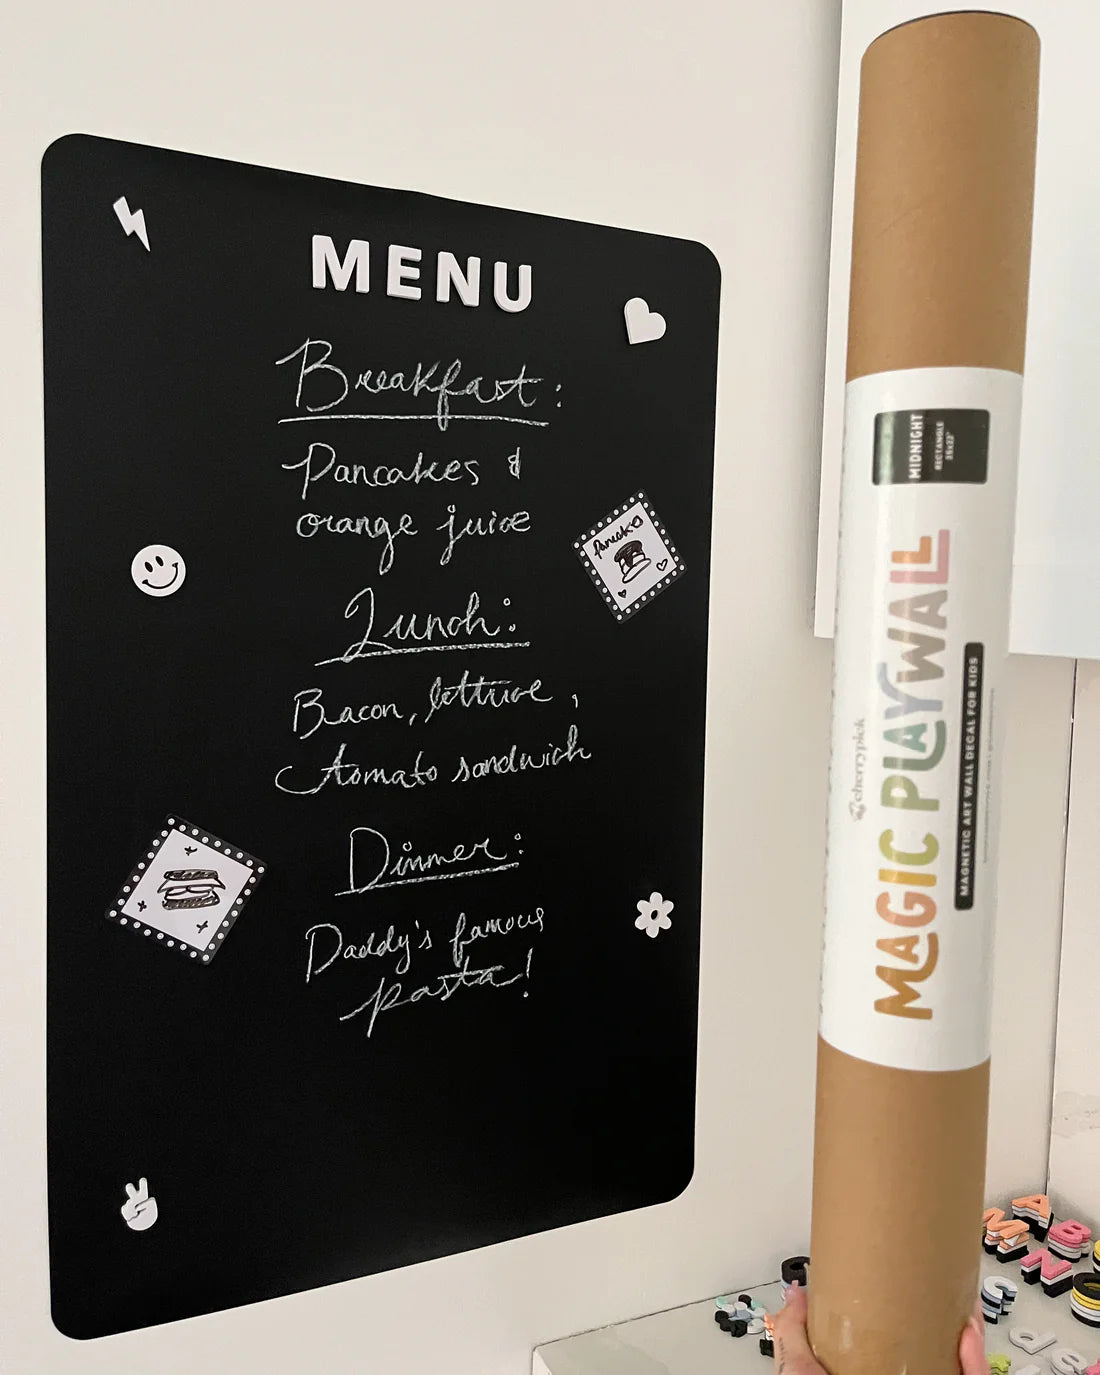 MENU
Breakfast:
Pancakes &
orange juice
Lunch:
Bacon, lettuce,
tomato sandwich
Dinner:
Daddy's famous
pasta!
Pancakes
MIDNIGHT
RECTANGLE
cherrypick
MAGIC PLAYWALL
MAGNETIC ART WALL DECAL FOR KIDS
A
M
B
N
C